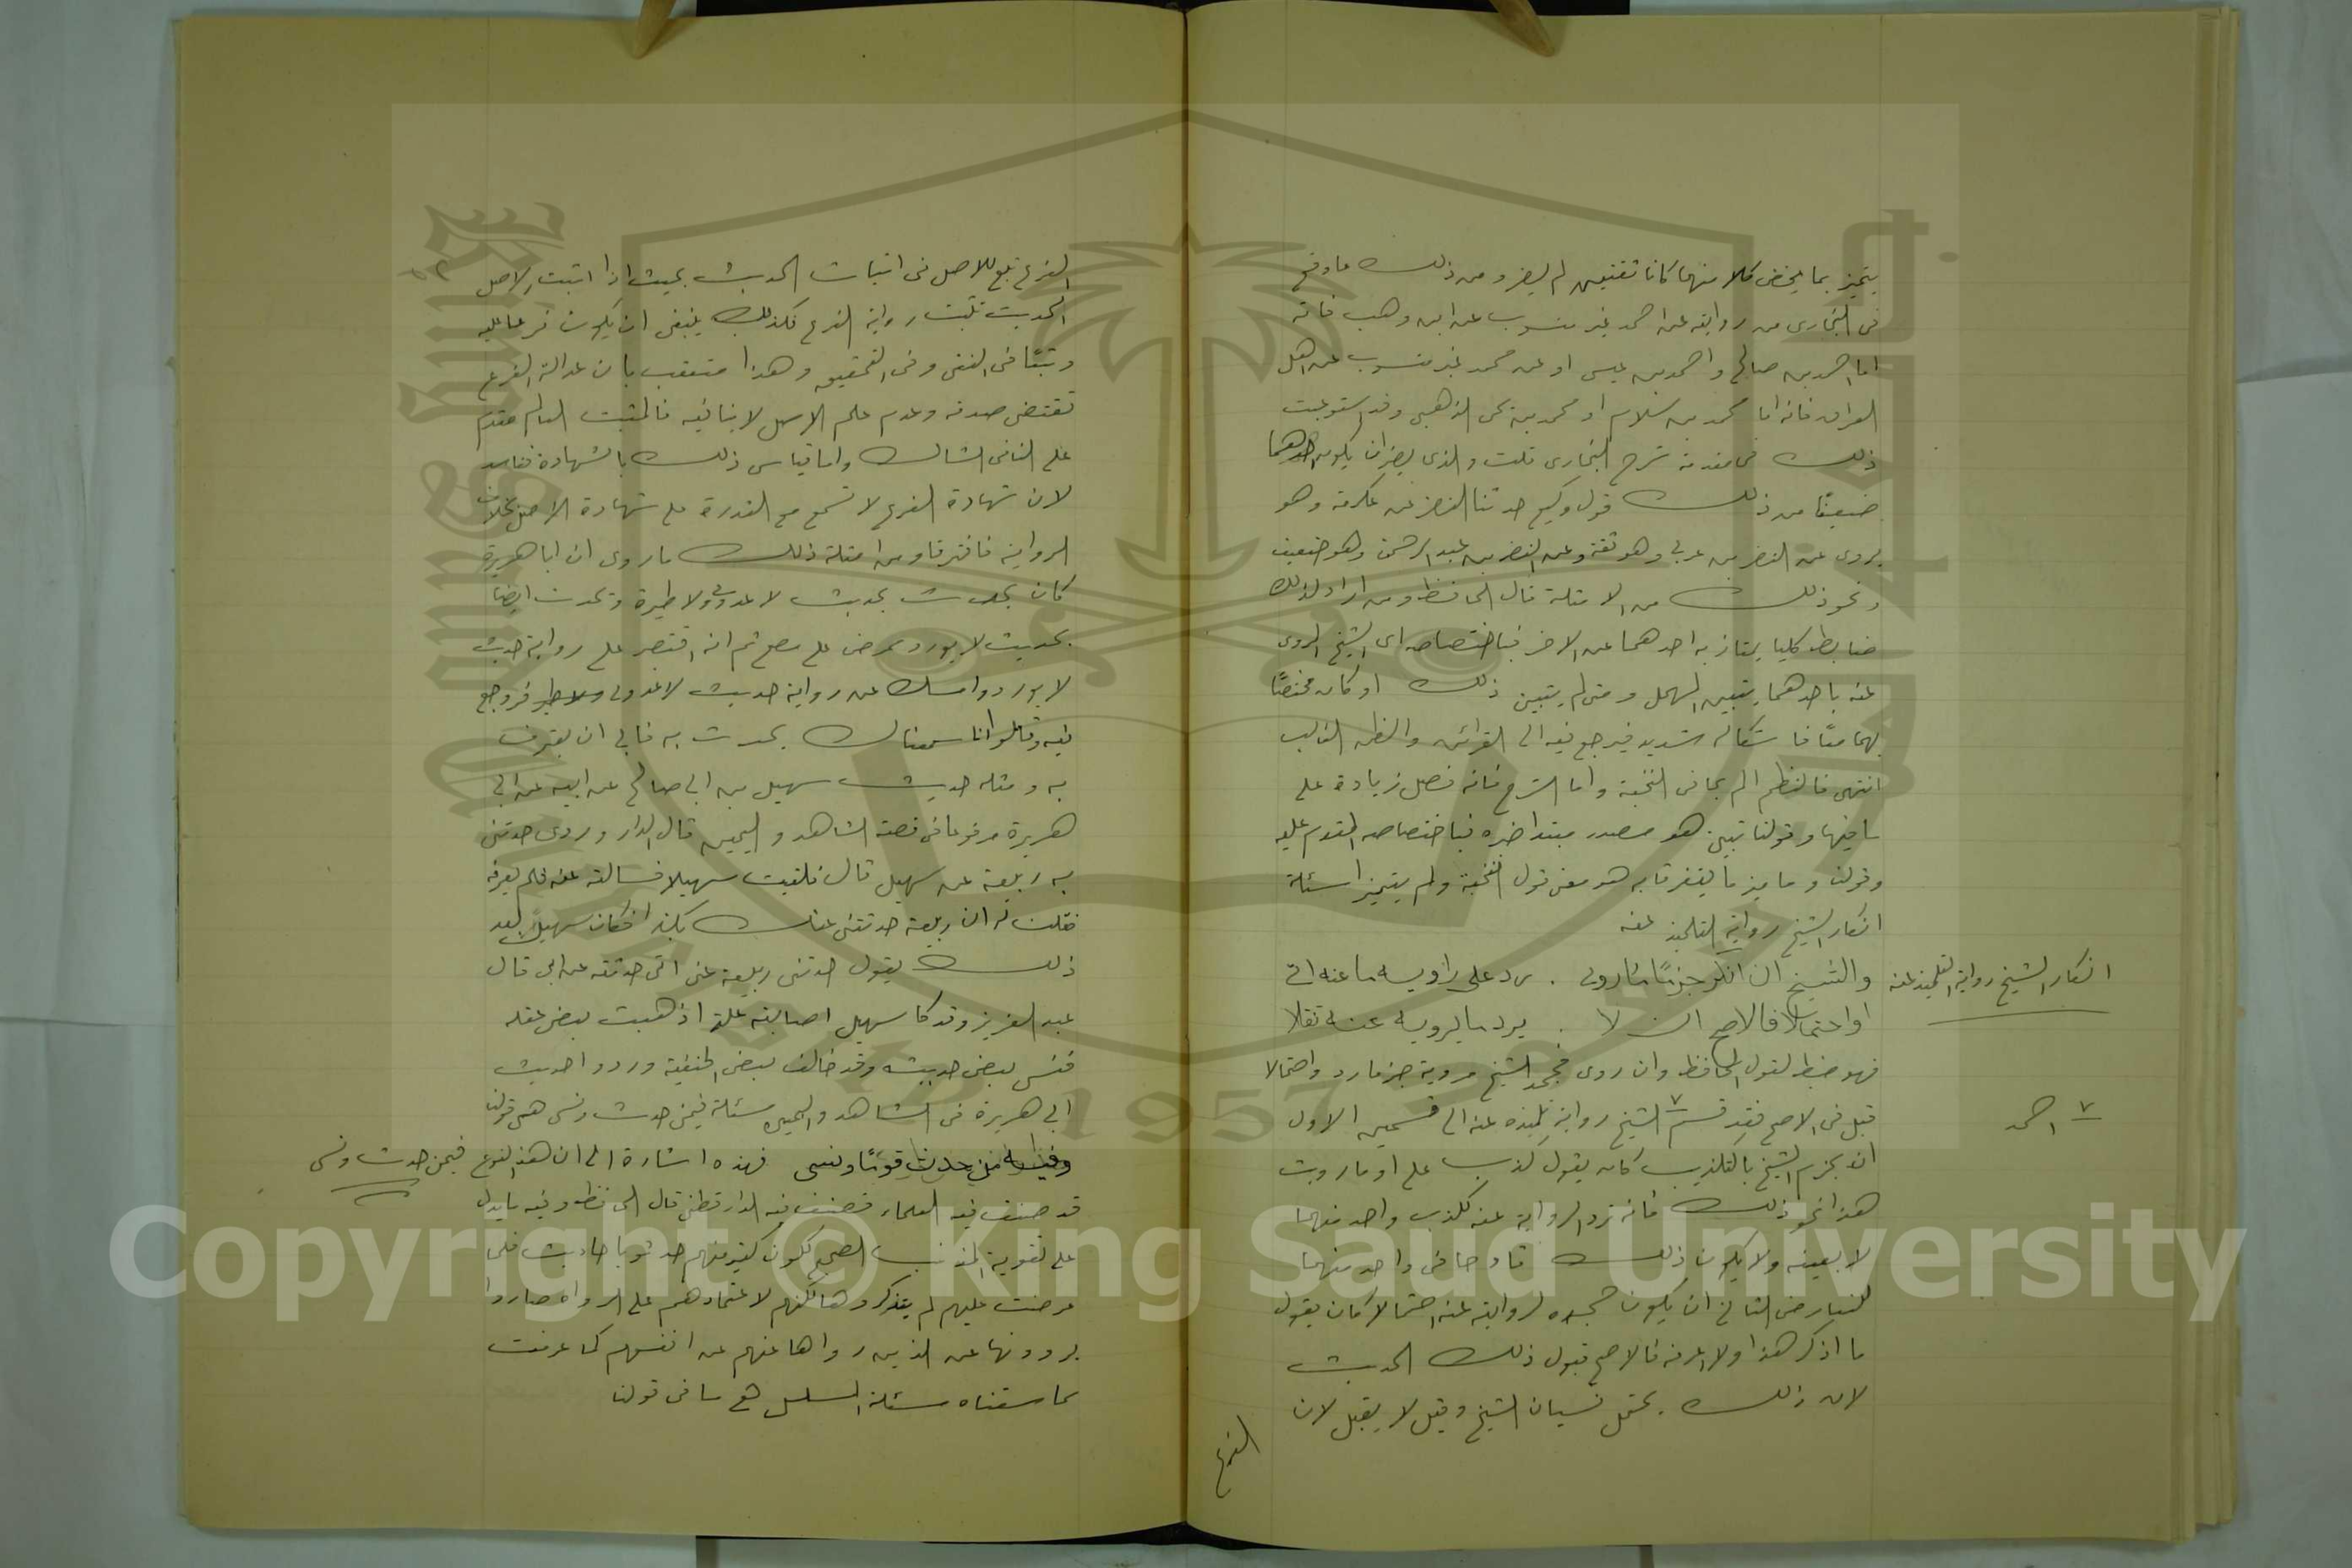 يتميز بما يخص كلا منهما كانا ثقتين لم يضر ومن ذلك ما وقع
في البخاري من روايته عن احمد غير منسوب عن ابن وهب فانه
اما احمد بن صالح واحمد بن عيسى او عن محمد غير منسوب عن اهل
العراق فانه اما محمد بن سلام او محمد بن يحيى الذهبي وقد استوعبت
ذلك في مقدمة شرح البخاري قلت والذي يضر ان يكون احدهما
ضعيفا من ذلك قول وكيع حدثنا النضر عن عكرمة وهو
يروي عن النضر بن عربي وهو ثقة وعن النضر بن عبد الرحمن وهو ضعيف
ونحو ذلك من الامثلة قال الحافظ ومن اراد لذلك
ضابطا كليا يمتاز به احدهما عن الاخر فباختصاصه اي الشيخ المروي
عنه باحدهما يتبين المهمل ومتى لم يتبين ذلك او كان مختصا
بهما معا فاشكاله شديد فيرجع فيه الى القرائن والظن الغالب
انتهى فالنظم الم بما في النخبة واما الشرح فانه فصل زيادة على
ما فيها وقولنا تبين هو مصدر مبتدا خبره فباختصاصه المقدم عليه
وقولنا وما ميز ما يفترقا به هو معنى قول النخبة ولم يتميزا مسئلة
انكار الشيخ رواية التلميذ عنه
انكار الشيخ رواية التلميذ عنه
والشيخ ان انكر جزما ما روى . رد على راويه ما عنه اتى
او احتمالا فالاصح ان لا . يرد ما يرويه عنه نقلا
فهو ضبط لقول الحافظ وان روى فجحد الشيخ مرويه جزما رد واحتمالا
قبل في الاصح فقد قسم الشيخ رواية تلميذه عنه الى قسمين الاول
٧ احمد
ان يجزم الشيخ بالتكذيب كان يقول كذب علي او ما رويت
هذا نحو ذلك فانه ترد الرواية عنه لكذب واحد منهما
لا بعينه ولا يكون ذلك قادحا في واحد منهما
للتعارض الثاني ان يكون جحده لروايته عنه احتمالا كان يقول
ما اذكر هذا ولا اعرفه فالاصح قبول ذلك الحديث
لان ذلك يحتمل نسيان الشيخ وقيل لا يقبل لان
الفرع
الفرع تبع للاصل في اثبات الحديث بحيث اذا اثبت الاصل
الحديث تثبت رواية الفرع فكذلك ينبغي ان يكون فرعا عليه
وتبعا في النفي وفي التحقيق وهذا متعقب بان عدالة الفرع
تقتضي صدقه وعدم علم الاصل لا ينافيه فالمثبت العالم مقدم
على النافي الشاك واما قياس ذلك بالشهادة ففاسد
لان شهادة الفرع لا تسمع مع القدرة على شهادة الاصل بخلاف
الرواية فافترقا ومن امثلة ذلك ما روى ان ابا هريرة
كان يحدث بحديث لا عدوى ولا طيرة ويحدث ايضا
بحديث لا يورد ممرض على مصح ثم انه اقتصر على رواية حديث
لا يورد وامسك عن رواية حديث لا عدوى ولا طير فروجع
فيه وقالوا انا سمعناك تحدث به فابى ان يعترف
به ومثله حديث سهيل بن ابي صالح عن ابيه عن ابي
هريرة مرفوعا في قصة الشاهد واليمين قال الدراوردي حدثني
به ربيعة عن سهيل قال فلقيت سهيلا فسالته عنه فلم يعرفه
فقلت له ان ربيعة حدثني عنك بكذا فكان سهيل بعد
ذلك يقول حدثني ربيعة عني اني حدثته عن ابي قال
عبد العزيز وقد كا سهيل اصابته علة اذهبت بعض عقله
فنسي بعض حديثه وقد خالف بعض الحنفية وردوا حديث
ابي هريرة في الشاهد واليمين مسئلة فيمن حدث ونسى هي قولنا
وفيه من حدث قوما ونسى فهذه اشارة الى ان هذا النوع
فيمن حدث ونسى
قد صنف فيه العلماء فصنف فيه الدارقطني قال الحافظ وفيه ما يدل
على تقوية المذهب الصحيح لكون كثير منهم حدثوا باحاديث فلما
عرضت عليهم لم يتذكروها لكنهم لاعتمادهم على الرواه صاروا
يروونها عن الذين رووها عنهم عن انفسهم كما عرفت
بما سقناه مسئلة المسلسل هي ما في قولنا
Copyright © King Saud University
1957